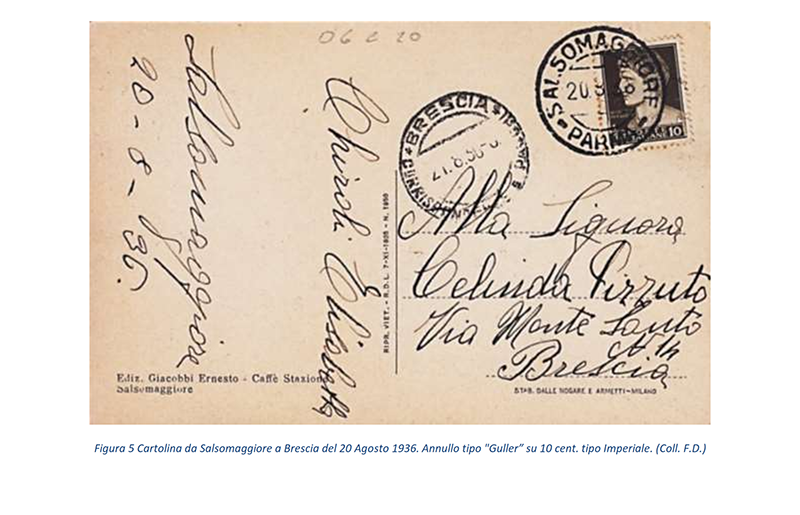 06 2 20
Salsomaggiore
20-8-36.
Chiroli Elisabetta
SALSOMAGGIORE
20.8.36
PARMA
10
BRESCIA
21.8.36
RIPR. VIET. - R.D.L. 7-XI-1925 - N. 1950
Alla Signora
Celinda Pizzuto
Via Monte Santo
N 14
Brescia
Ediz. Giacobbi Ernesto - Caffè Stazione
Salsomaggiore
STAB. DALLE NOGARE E ARMETTI - MILANO
Figura 5 Cartolina da Salsomaggiore a Brescia del 20 Agosto 1936. Annullo tipo "Guller” su 10 cent. tipo Imperiale. (Coll. F.D.)